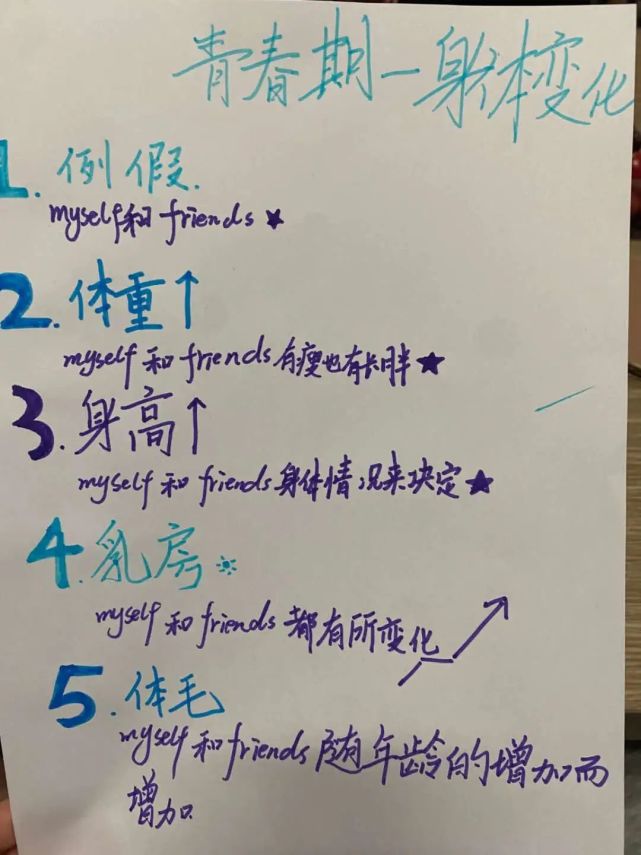 青春期—身体变化
1. 例假.
myself和friends ★
2. 体重↑
myself和friends有瘦也有长胖★
3. 身高↑
myself和friends身体情况来决定★
4. 乳房
myself和friends都有所变化
5. 体毛
myself和friends随年龄的增加而
增加.